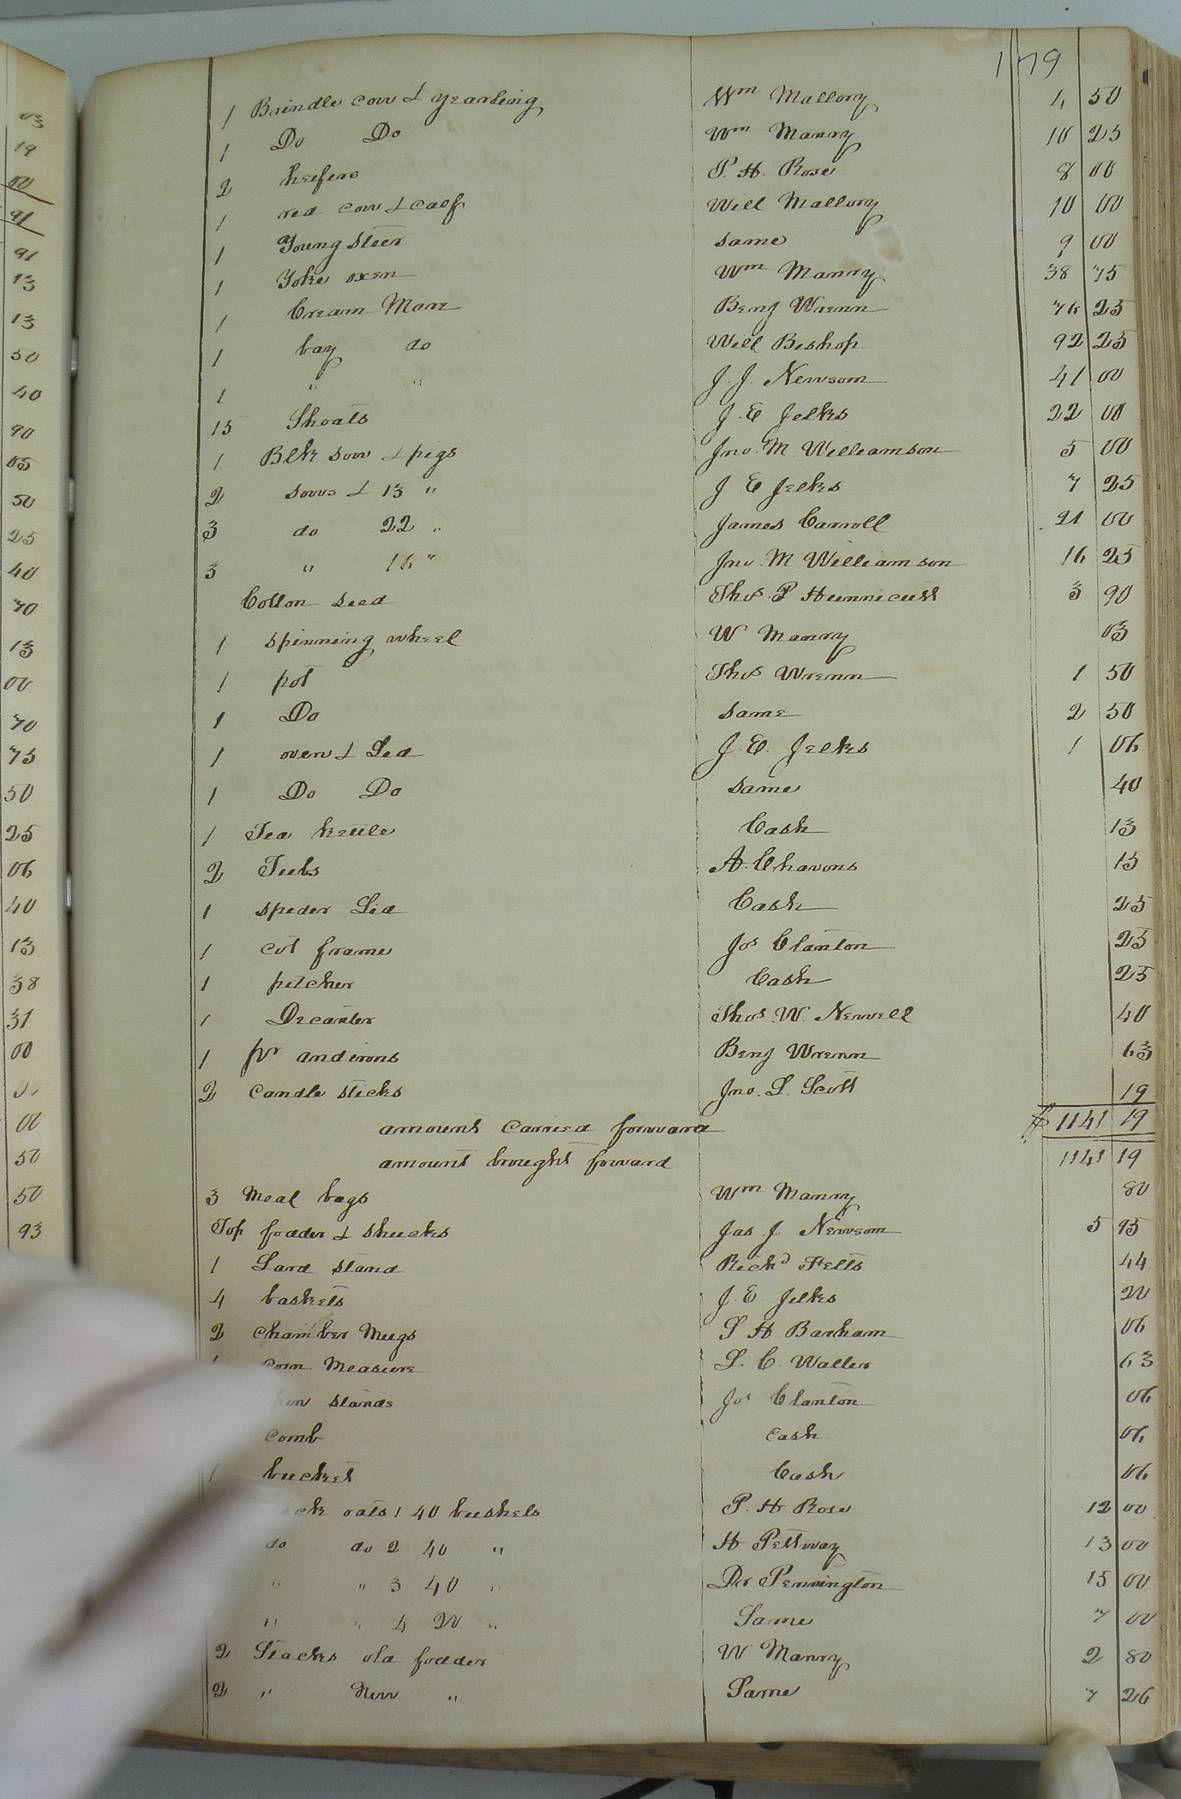 179
1 Brindle cow & yearling Wm Mallory 11 50
1 Do Do Wm Manry 10 25
2 heifers P. H. Rose 8 00
1 red cow & calf Will Mallory 10 00
1 Young steer same 9 00
1 Yoke oxen Wm Manry 38 75
1 Cream Mare Benj Wrenn 76 25
1 bay do Will Bishop 92 25
1 " " J. J. Newsom 41 00
15 Shoats J. E Jelks 22 00
1 Blk sow & pigs Jno. M. Williamson 5 00
2 sows & 13 " J E Jelks 7 25
3 do 22 " James Carroll 21 00
3 " 16 " Jno. M. Williamson 16 25
Cotton seed Thos. P Hunnicutt 3 90
1 spinning wheel W Manry 03
1 pot Thos Wrenn 1 50
1 Do same 2 50
1 oven & Lid J. E. Jelks 1 06
1 Do Do same 40
1 Tea kettle Cash 13
2 Tubs A. Chavons 13
1 spider Lid Cash 25
1 cot frame Jos Clanton 25
1 pitcher Cash 25
1 Decanter Thos. W. Newell 40
1 pr andirons Benj Wrenn 63
2 candle sticks Jno. L. Scott 19
amount carried forward $ 1141 19
amount brought forward 1141 19
3 Meal bags Wm Manry 80
Top fodder & shucks Jas J Newsom 5 95
1 Lard stand Richd Felts 44
4 baskets J. E. Jelks 20
2 chamber Mugs L H Barham 06
corn Measure L. C. Waller 63
stands Jos Clanton 06
comb cash 06
1 bucket Cash 06
oats 1 40 bushels P. H. Rose 12 00
do do 2 40 " H Pettway 13 00
" " 3 40 " Dr Pennington 15 00
" " 4 20 " Same 7 00
2 Stacks old fodder W Manry 2 80
2 " New " Same 7 26
03
19
00
91
91
13
13
50
40
90
05
50
25
40
70
13
00
70
75
50
25
06
40
13
38
31
00
00
50
50
93